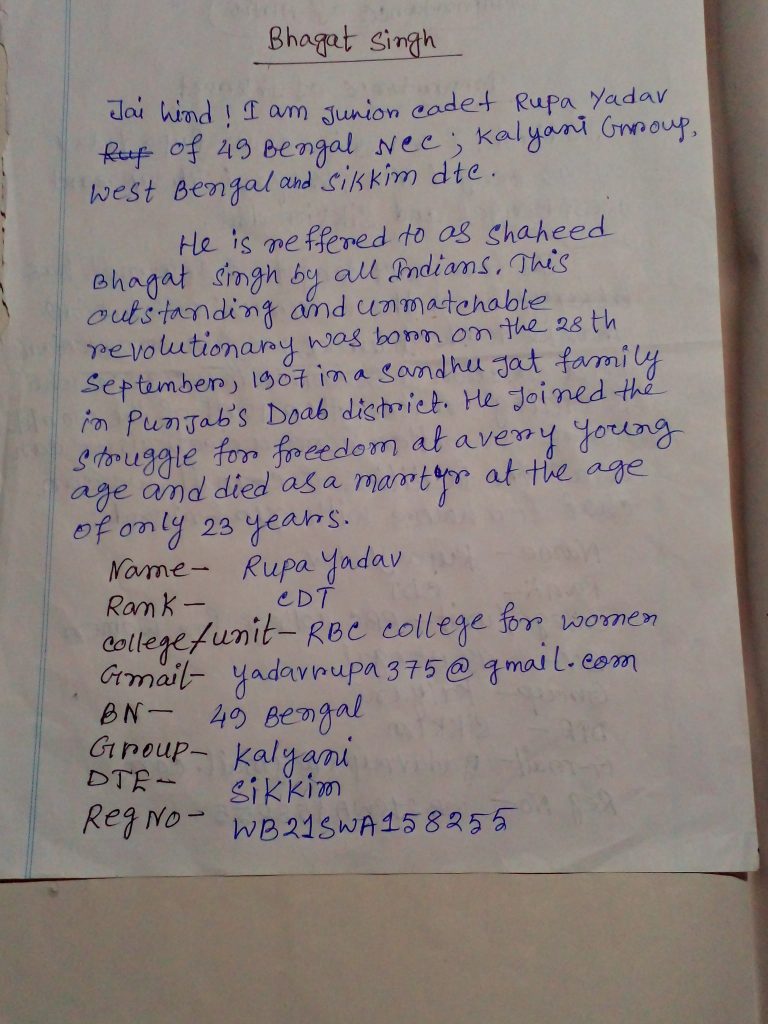 Bhagat Singh
Jai hind! I am Junior cadet Rupa Yadav
Rup of 49 Bengal Ncc; Kalyani Group,
West Bengal and Sikkim dte.
He is reffered to as Shaheed
Bhagat Singh by all Indians. This
outstanding and unmatchable
revolutionary was born on the 28th
September, 1907 in a Sandhu Jat family
in Punjab's Doab district. He Joined the
struggle for freedom at a very young
age and died as a martyr at the age
of only 23 years.
Name- Rupa Yadav
Rank- CDT
college/unit- RBC college for women
Gmail- yadavrupa375@gmail.com
BN- 49 Bengal
Group- Kalyani
DTE- Sikkim
Reg No- WB21SWA158255